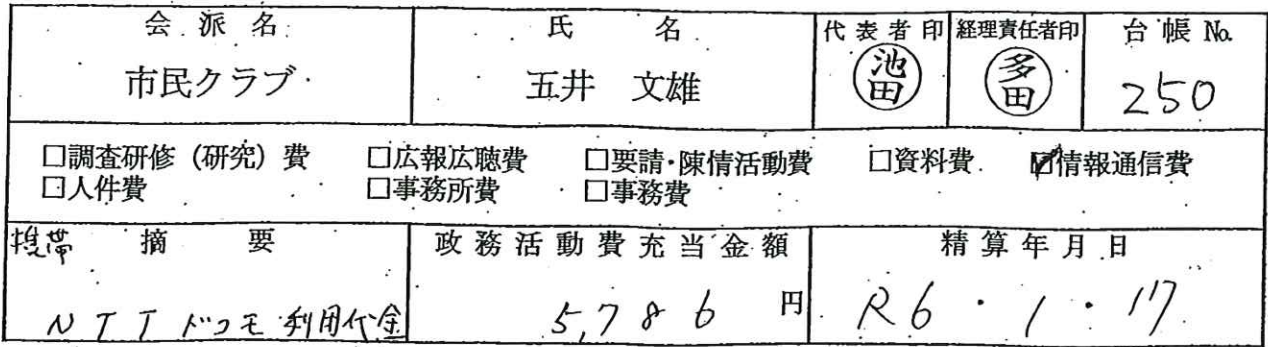 会派名 氏名 代表者印 経理責任者印 台帳 No.
市民クラブ 五井 文雄 池田 多田 250
□調査研修(研究)費 □広報広聴費 □要請・陳情活動費 □資料費 ☑情報通信費
□人件費 □事務所費 □事務費
携帯 摘要 政務活動費充当金額 精算年月日
NTTドコモ利用代金 5,786円 R6・1・17